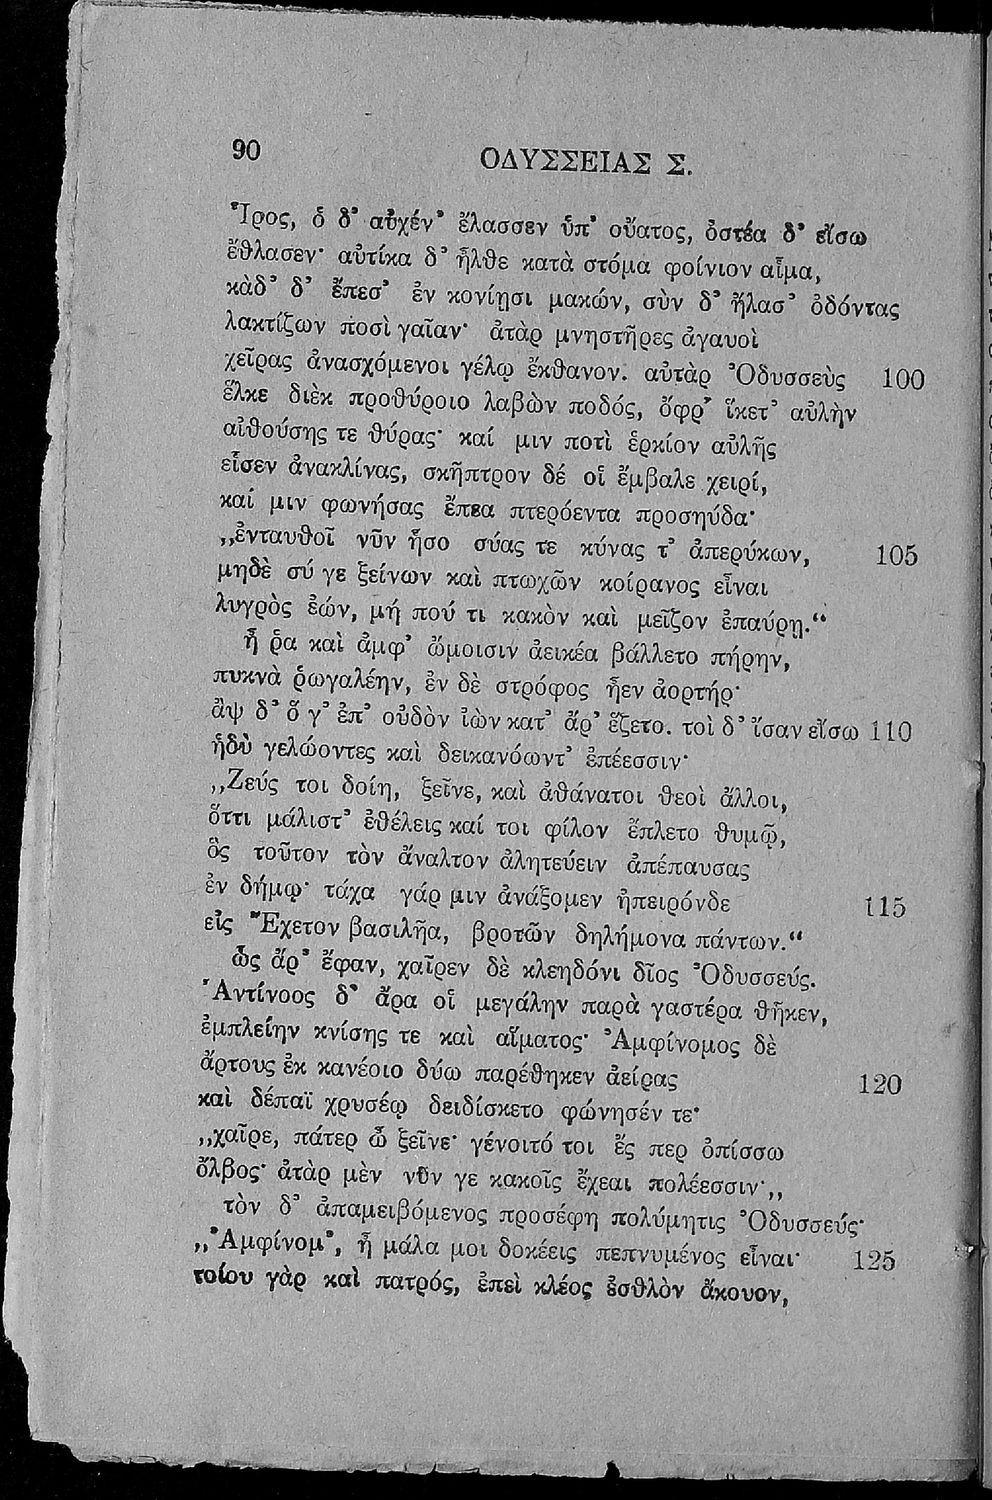 90 ΟΔΥΣΣΕΙΑΣ Σ.
Ἶρος, ὁ δ᾽ αὐχέν᾽ ἔλασσεν ὑπ᾽ οὔατος, ὀστέα δ᾽ εἴσω
ἔθλασεν· αὐτίκα δ᾽ ἦλθε κατὰ στόμα φοίνιον αἷμα,
κὰδ᾽ δ᾽ ἔπεσ᾽ ἐν κονίῃσι μακών, σὺν δ᾽ ἤλασ᾽ ὀδόντας
λακτίζων ποσὶ γαῖαν· ἀτὰρ μνηστῆρες ἀγαυοὶ
χεῖρας ἀνασχόμενοι γέλῳ ἔκθανον. αὐτὰρ Ὀδυσσεὺς 100
ἕλκε διὲκ προθύροιο λαβὼν ποδός, ὄφρ᾽ ἵκετ᾽ αὐλὴν
αἰθούσης τε θύρας· καί μιν ποτὶ ἑρκίον αὐλῆς
εἷσεν ἀνακλίνας, σκῆπτρον δέ οἱ ἔμβαλε χειρί,
καί μιν φωνήσας ἔπεα πτερόεντα προσηύδα·
„ἐνταυθοῖ νῦν ἧσο σύας τε κύνας τ᾽ ἀπερύκων, 105
μηδὲ σύ γε ξείνων καὶ πτωχῶν κοίρανος εἶναι
λυγρὸς ἐών, μή πού τι κακὸν καὶ μεῖζον ἐπαύρῃ.“
ἦ ῥα καὶ ἀμφ᾽ ὤμοισιν ἀεικέα βάλλετο πήρην,
πυκνὰ ῥωγαλέην, ἐν δὲ στρόφος ἦεν ἀορτήρ·
ἂψ δ᾽ ὅ γ᾽ ἐπ᾽ οὐδὸν ἰὼν κατ᾽ ἄρ᾽ ἕζετο. τοὶ δ᾽ ἴσαν εἴσω 110
ἡδὺ γελώοντες καὶ δεικανόωντ᾽ ἐπέεσσιν·
„Ζεύς τοι δοίη, ξεῖνε, καὶ ἀθάνατοι θεοὶ ἄλλοι,
ὅττι μάλιστ᾽ ἐθέλεις καί τοι φίλον ἔπλετο θυμῷ,
ὃς τοῦτον τὸν ἄναλτον ἀλητεύειν ἀπέπαυσας
ἐν δήμῳ· τάχα γάρ μιν ἀνάξομεν ἠπειρόνδε 115
εἰς Ἔχετον βασιλῆα, βροτῶν δηλήμονα πάντων.“
ὣς ἄρ᾽ ἔφαν, χαῖρεν δὲ κλεηδόνι δῖος Ὀδυσσεύς.
Ἀντίνοος δ᾽ ἄρα οἱ μεγάλην παρὰ γαστέρα θῆκεν,
ἐμπλείην κνίσης τε καὶ αἵματος· Ἀμφίνομος δὲ
ἄρτους ἐκ κανέοιο δύω παρέθηκεν ἀείρας 120
καὶ δέπαϊ χρυσέῳ δειδίσκετο φώνησέν τε·
„χαῖρε, πάτερ ὦ ξεῖνε· γένοιτό τοι ἔς περ ὀπίσσω
ὄλβος· ἀτὰρ μὲν νῦν γε κακοῖς ἔχεαι πολέεσσιν·„
τὸν δ᾽ ἀπαμειβόμενος προσέφη πολύμητις Ὀδυσσεύς·
„Ἀμφίνομ᾽, ἦ μάλα μοι δοκέεις πεπνυμένος εἶναι· 125
τοίου γὰρ καὶ πατρός, ἐπεὶ κλέος ἐσθλὸν ἄκουον,